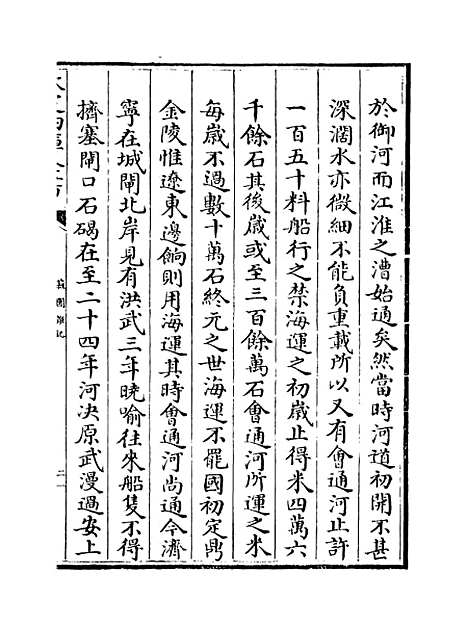 於御河而江淮之漕始通矣然當時河道初開不甚
深濶水亦微細不能負重載所以又有會通河止許
一百五十料船行之禁海運之初歳止得米四萬六
千餘石其後歳或至三百餘萬石會通河所運之米
每歳不過數十萬石終元之世海運不罷國初定鼎
金陵惟遼東邊餉則用海運其時會通河尚通今濟
寧在城閘北岸見有洪武三年曉喻往來船隻不得
擠塞閘口石碣在至二十四年河決原武漫過安上
菽園雜記